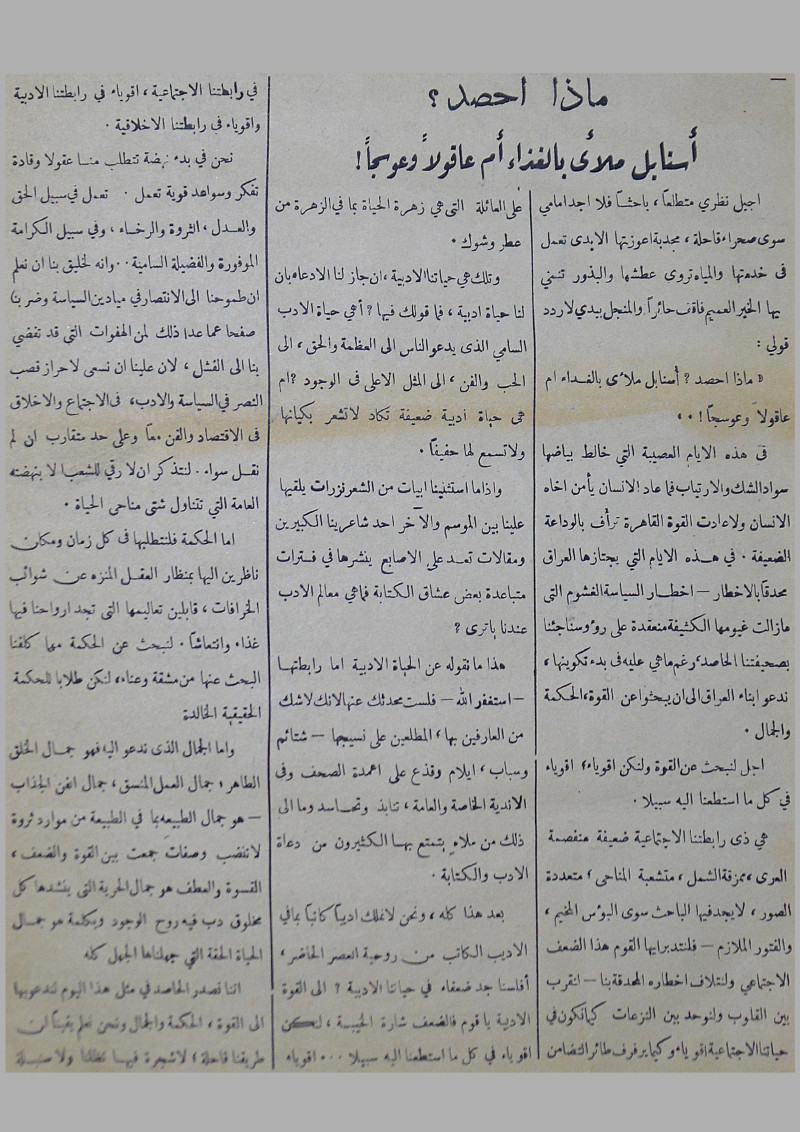 ماذا احصد ؟
أسنابل ملأى بالغذاء أم عاقولاً وعوسجاً !
اجيل نظري متطلعاً ، باحثاً فلا اجد امامي
سوى صحراء قاحلة ، مجدبة اعوزتها الايدى تعمل
فى خدمتها والمياه تروى عطشها والبذور تنمي
بها الخير العميم فاقف حائراً والمنجل بيدي لاردد
قولي :
« ماذا احصد ? أسنابل ملأى بالغداء ام
عاقولاً وعوسجاً ! »
فى هذه الايام العصيبة التي خالط بياضها
سواد الشك والارتياب فما عاد الانسان يأمن اخاه
الانسان ولا عادت القوة القاهرة ترأف بالوداعة
الضعيفة . في هذه الايام التي يجتازها العراق
محدقاً بالاخطار — اخطار السياسة الغشوم التى
مازالت غيومها الكثيفة منعقدة على رؤوسنا جئنا
بصحيفتنا الحاصد ، رغم ماهي عليه فى بدء تكوينها ،
ندعو ابناء العراق الى ان يبحثوا عن القوة ، الحكمة
والجمال .
اجل لنبحث عن القوة ولنكن اقوياء ؛ اقوياء
في كل ما استطعنا اليه سبيلا .
هي ذى رابطتنا الاجتماعية ضعيفة منفصمة
العرى ، ممزقة الشمل ، متشعبة المناحى ؛ متعددة
الصور ، لايجد فيها الباحث سوى البؤس المخيم ،
والفتور الملازم — فلنتدبر ايها القوم هذا الضعف
الاجتماعي ولنتلاف اخطاره المحدقة بنا — لنقرب
بين القلوب ولنوحد بين النزعات كيما نكون في
حياتنا الاجتماعية اقوياء وكيما يرفرف طائر التضامن
على العائلة التى هي زهرة الحياة بما في الزهرة من
عطر وشوك .
وتلك هي حياتنا الادبية ، ان جاز لنا الادعاء بان
لنا حياة ادبية ، فما قولك فيها ? أهي حياة الادب
السامي الذى يدعو الناس الى العظمة والحق ، الى
الحب والفن ، الى المثل الاعلى فى الوجود ? ام
هى حياة أدبية ضعيفة تكاد لا تشعر بكيانها
ولا تسمع لها حفيفاً .
واذا ما استثنينا ابيات من الشعر نزرات يلقيها
علينا بين الموسم والآخر احد شاعرينا الكبيرين
ومقالات تعد على الاصابع ينشرها في فترات
متباعدة بعض عشاق الكتابة فما هي معالم الادب
عندنا ياترى ?
هذا ما نقوله عن الحياة الادبية اما رابطتها
— استغفر الله — فلست محدثك عنها لانك لاشك
من العارفين بها ، المطلعين على نسيجها — شتائم
وسباب ، ايلام وقذع على اعمدة الصحف وفى
الاندية الخاصة والعامة ، تنابذ وتحاسد وما الى
ذلك من ملاء يتمتع بها الكثيرون من دعاة
الادب والكتابة .
بعد هذا كله ، ونحن لا نملك اديباً كاتباً بما في
الاديب الكاتب من روحية العصر الحاضر ،
أفلسنا جد ضعفاء في حياتنا الادبية ? الى القوة
الادبية يا قوم فالضعف شارة الخيبة ، لنكن
اقوياء في كل ما استطعنا اليه سبيلا ... اقوياء
في رابطتنا الاجتماعية ، اقوياء في رابطتنا الادبية
واقوياء فى رابطتنا الاخلاقية .
نحن في بدء نهضة تتطلب منا عقولا وقادة
تفكر وسواعد قوية تعمل . تعمل في سبيل الحق
والعدل ، الثروة والرخاء ، وفي سبيل الكرامة
الموفورة والفضيلة السامية .. وانه لخليق بنا ان نعلم
ان طموحنا الى الانتصار في ميادين السياسة وضربنا
صفحا عما عدا ذلك لمن الهفوات التى قد تفضي
بنا الى الفشل ، لان علينا ان نسمى لاحراز قصب
النصر في السياسة والادب ، فى الاجتماع والاخلاق
فى الاقتصاد والفن معاً وعلى حد متقارب ان لم
نقل سواء . لنتذكر ان لا رقي للشعب الا بنهضته
العامة التي تتناول شتى مناحى الحياة .
اما الحكمة فلنتطلبها فى كل زمان ومكان
ناظرين اليها بمنظار العقل المنزه عن شوائب
الخرافات ، قابلين تعاليمها التى تجد ارواحنا فيها
غذاء وانتعاشاً . لنبحث عن الحكمة مهما كلفنا
البحث عنها من مشقة وعناء ، لنكن طلابا للحكمة
الحقيقية الخالدة
واما الجمال الذى ندعو اليه فهو جمال الخلق
الطاهر ، جمال العمل المنسق ، جمال الفن الجذاب
— هو جمال الطبيعه بما في الطبيعة من موارد ثروة
لا تنضب وصفات جمعت بين القوة والضعف ،
القسوة والعطف هو جمال الحرية التى ينشدها كل
مخلوق دب فيه روح الوجود وبكلمة هو جمال
الحياة الحقة التي جهلناها الجهل كله
اننا نصدر الحاصد في مثل هذا اليوم لندعو بها
الى القوة ، الحكمة والجمال ونحن نعلم يقيناً ان
طريقنا قاحلة ؛ لا شجرة فيها تظللنا ولا